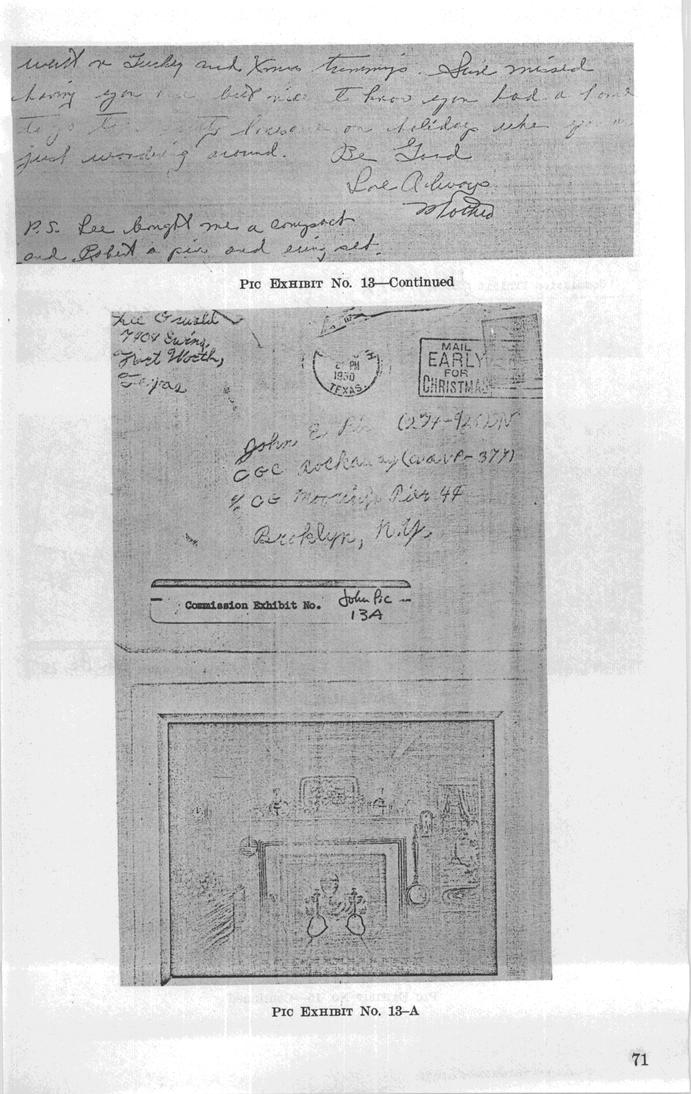 with a Turkey and Xmas trimmings. Sure missed
having you but nice to know you had a home
to go to on holidays
just wandering around. Be Good
Love Always
Mother
P.S. Lee bought me a compact
and Robert a pin and set.
PIC EXHIBIT NO. 13—Continued
Lee Oswald
7408 Ewing,
Fort Worth,
Texas
PM
1950
TEXAS.
MAIL
EARLY
FOR
CHRISTMAS
John E. Pic
CGC Rockaway (WAVP-377)
% CG Moorings Pier 44
Broklyn, N.Y.
Commission Exhibit No. John Pic
13A
PIC EXHIBIT NO. 13–A
71